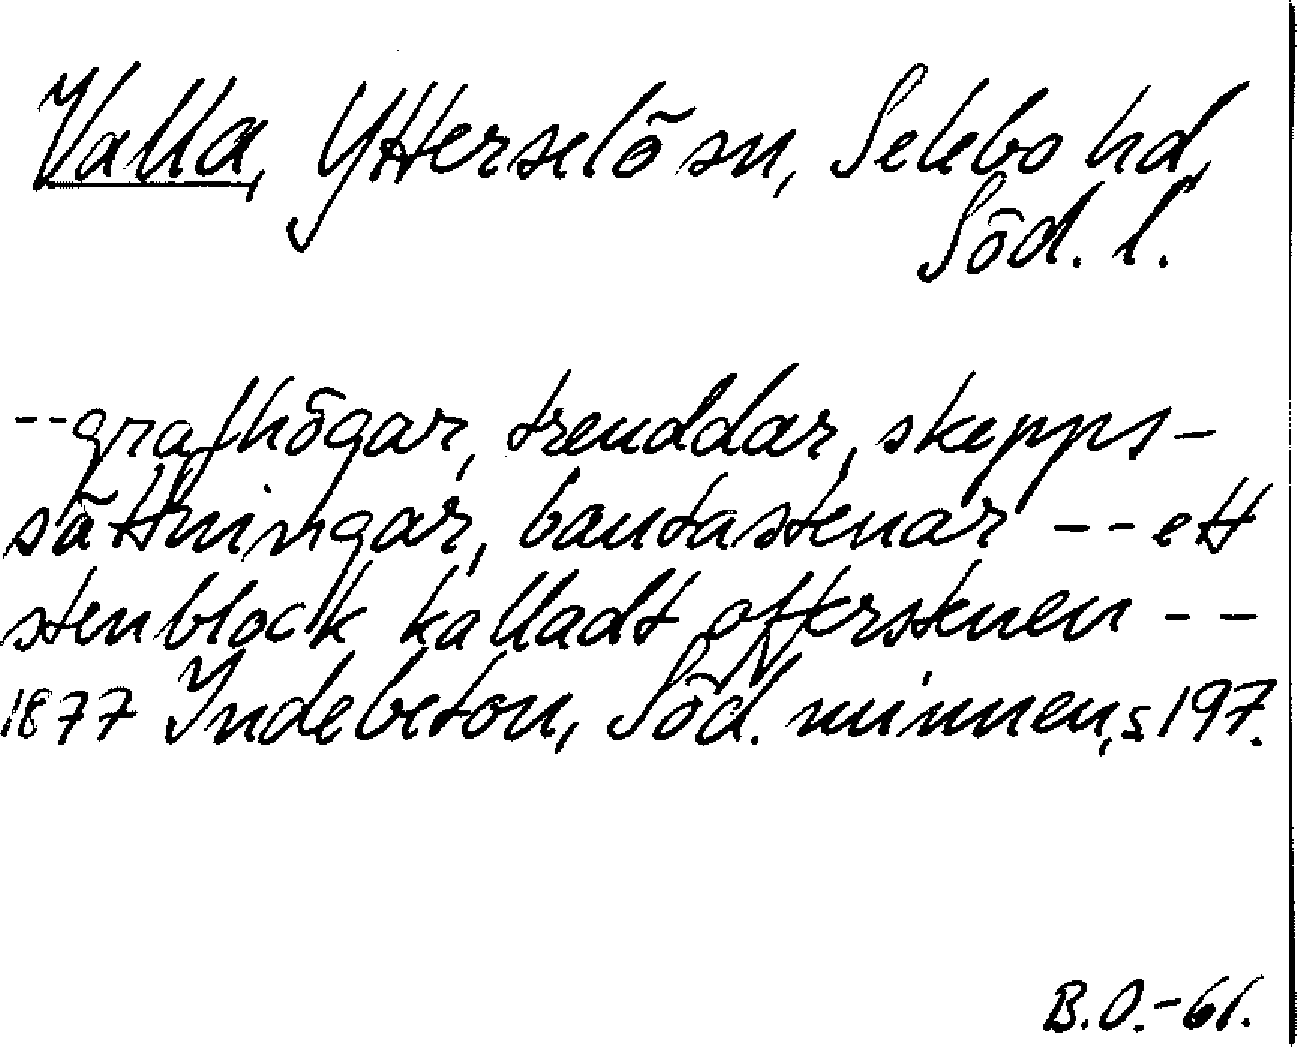 Valla, Ytterselö sn, Selebo hd,
Söd. l.
-- grafhögar, treuddar, skepps-
sättningar, bautastenar -- ett
stenblock kalladt offerstenen --
1877 Indebetou, Söd. minnen, s 197.
B.O.-61.